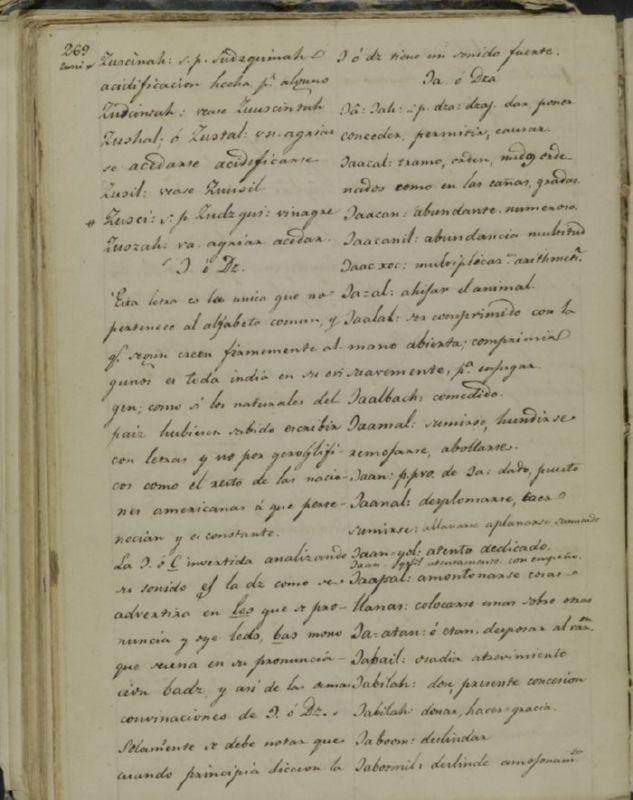 269
Zuscinah: s. p. Sudzguimah
acidificacion hecha pr. alguno
Zudcintah: vease Zuuscintah
Zushal; ó Zustal: vn. agriar
se acedarse acidificarse
Zusil: vease Zuusil
# Zusci: s. p. Zudzgus: vinagre
Zuszah: va. agriar acedar.
Ɔ. ó Dz.
Esta letra es la unica que no
pertenece al alfabeto comun, y
qe. segun creen firmemente al-
gunos es toda india en su ori
gen; como si los naturales del
paiz hubiesen sabido escribir
con letras y no por geroglifi-
cos como el resto de las nacio-
nes americanas á que perte-
necian y es constante.
La Ɔ. ó C invertida analizando
su sonido es la dz como se
advertira en les que se pro-
nuncia y oye leds, bas mono
que suena en su pronuncia-
cion badz, y asi de las demas
convinaciones de Ɔ. ó Dz.
Solamente se debe notar que
cuando principia diccion la
Ɔ ó dz tiene un sonido fuerte.
Ɔa. ó Dza
Ɔâ: Ɔah: s. p. dza: dzaj. dar, poner
conceder, permitir, causar.
Ɔaacal: tramo, orden, nudos orde-
nados como en las cañas, gradas.
Ɔaacan: abundante. numeroso.
Ɔaacanil: abundancia multitud
Ɔaac xoc: multiplicar arithmeti
Ɔa-al: ahijar el animal.
Ɔaalal: ser comprimido con la
mano abierta; comprimir
suavemente, pa. enjugar.
Ɔaalbach: comedido.
Ɔaamal: sumirse, hundirse
remojarse, abollarse.
Ɔaan: p. pro. de Ɔa: dado, puesto
Ɔaanal: desplomarse, caer
sumirse: allanarse aplanarse sumirse
Ɔaan-yol: atento dedicado.
Ɔaan atentamente. con empeño.
Ɔaapal: amontonarse cosas
llanas: colocarse unas sobre otras
Ɔa-atan: ó etan. desposar al
Ɔabail: osadia atrevimiento
Ɔabilah: don, presente concesion
Ɔabilah: donar, hacer gracia.
Ɔaboom: deslindar
Ɔabomil: deslinde amojonamto